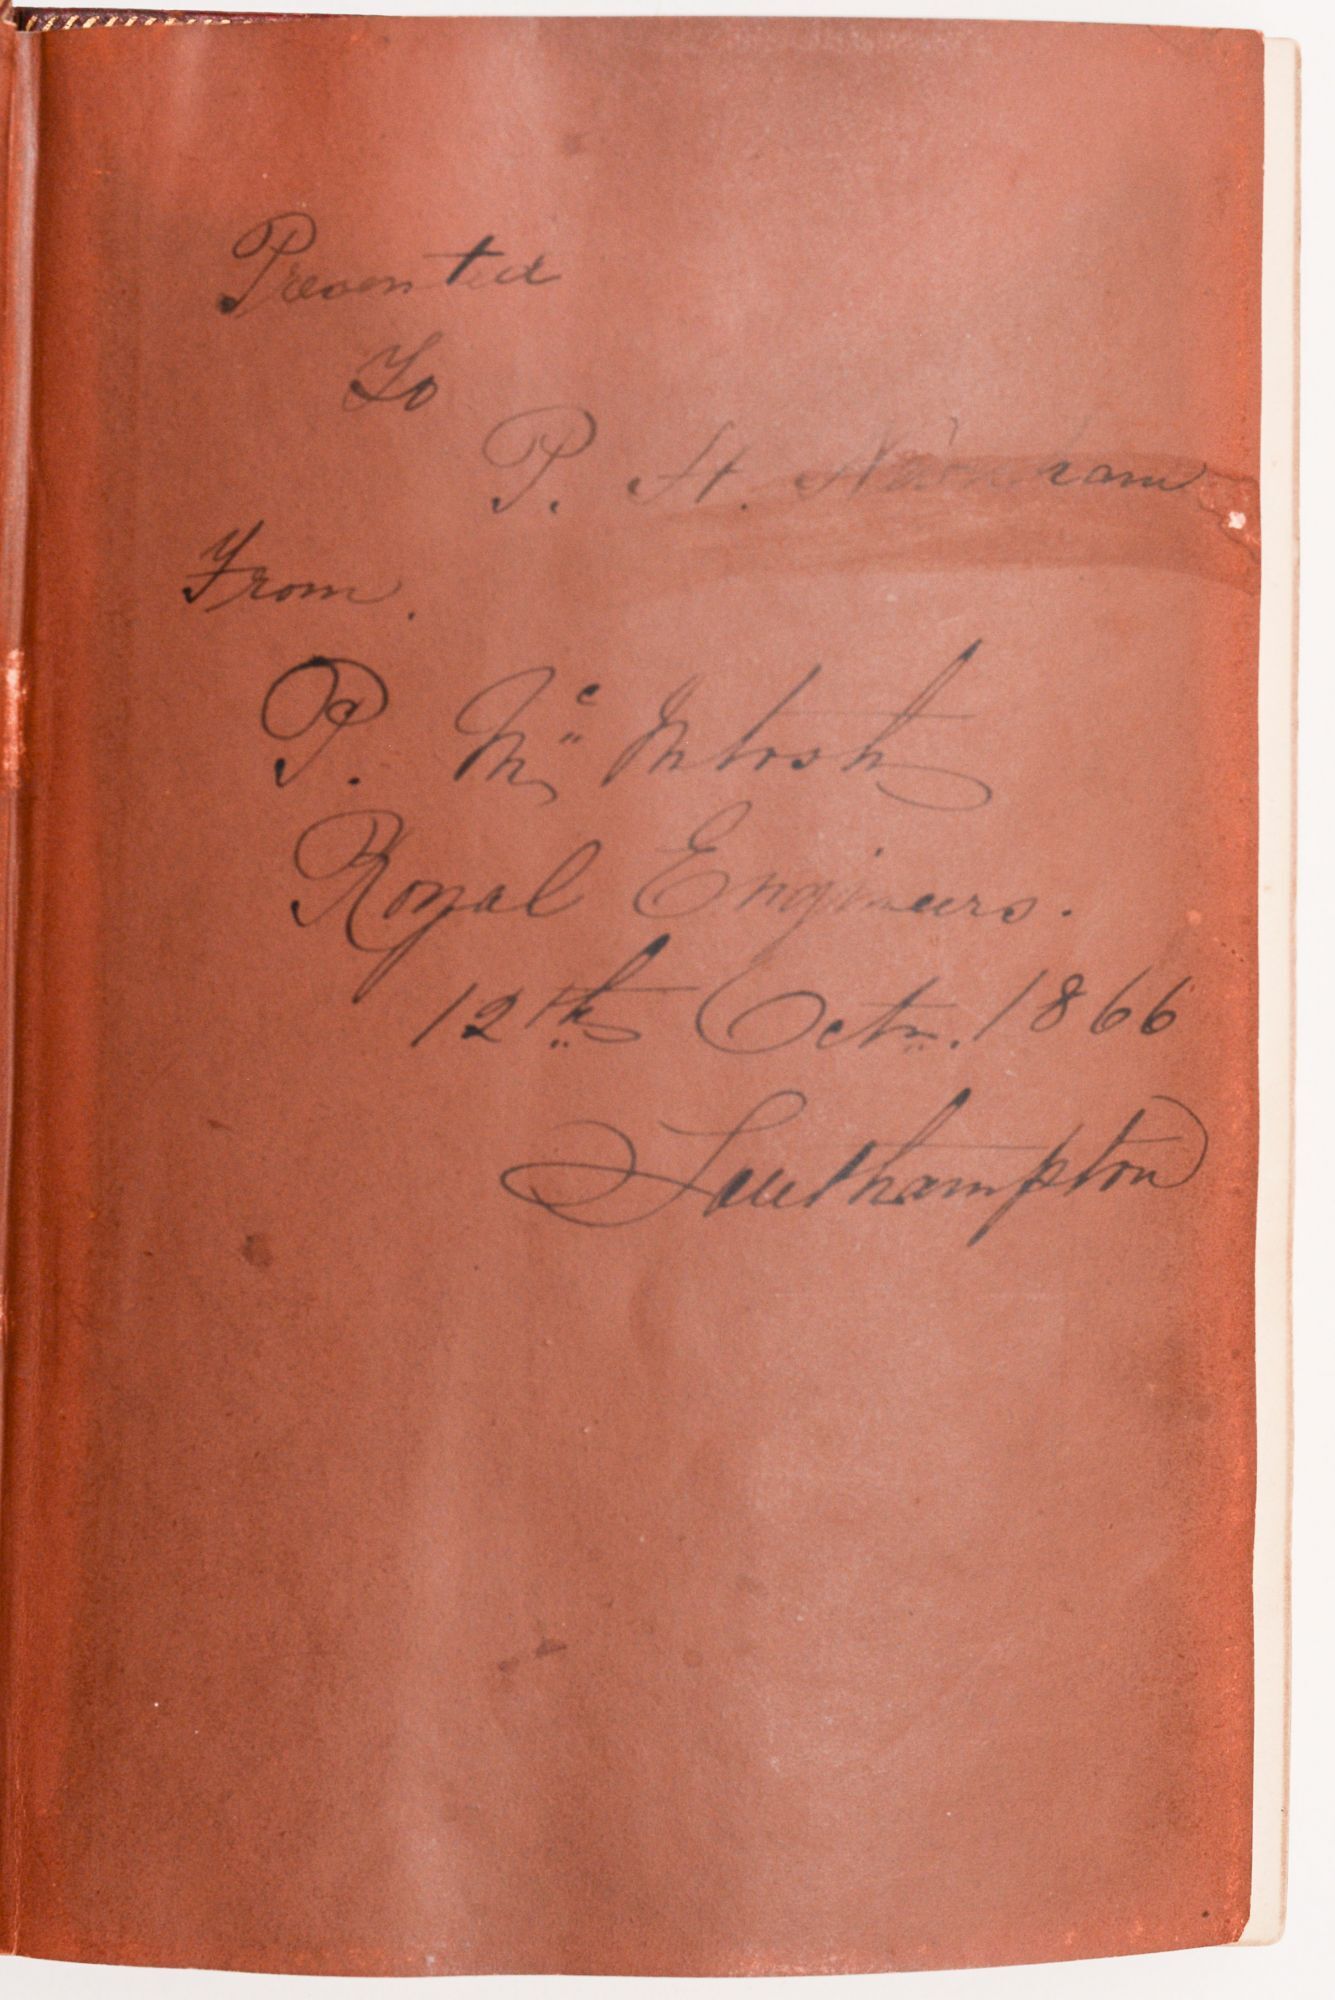 Presented
To
P. H.
From.
P. Mc Intosh
Royal Engineers.
12th Octr. 1866
Southampton